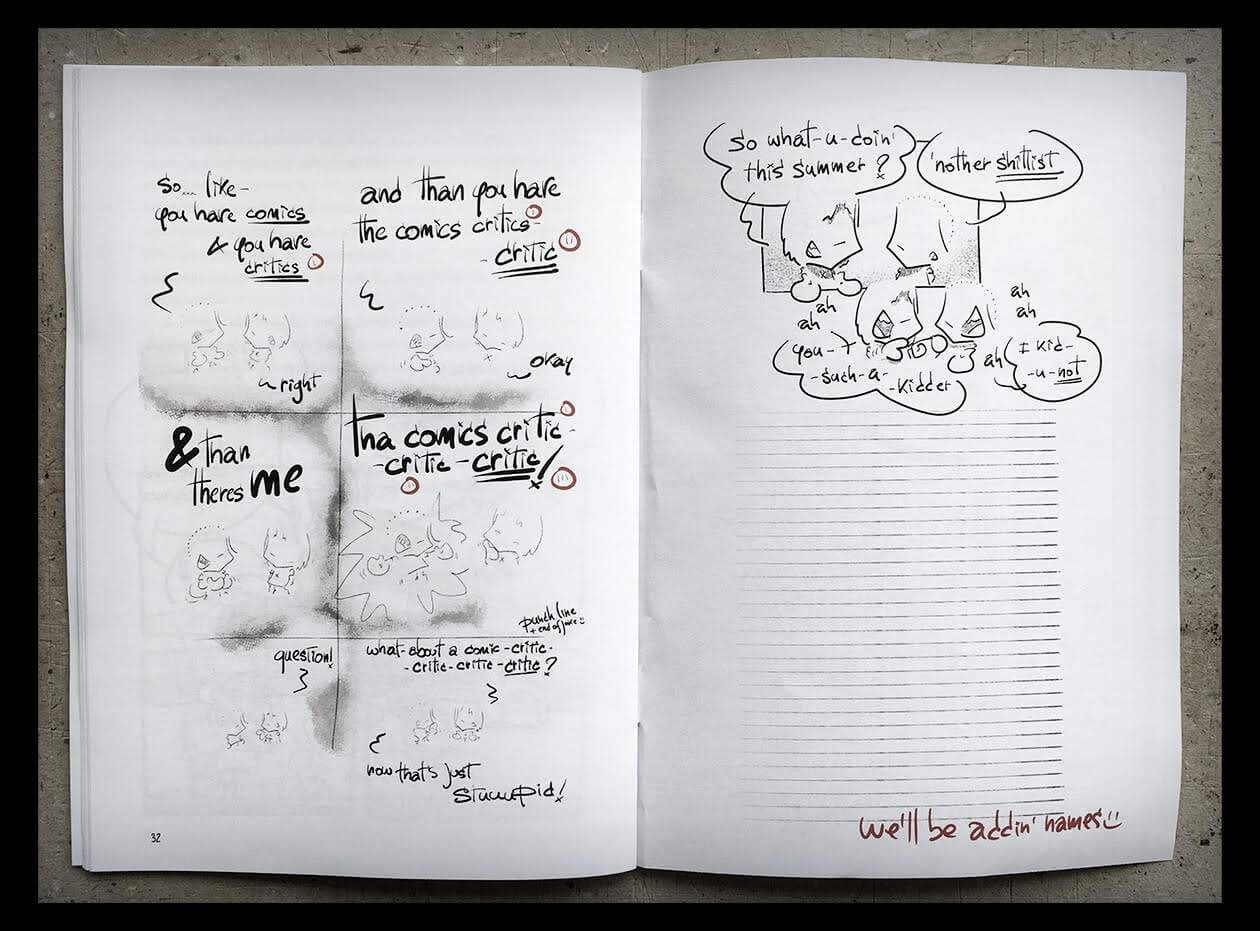 So... like-
you have comics
& you have
critics
right
and than you have
the comics critics-
- critic
okay
& than
theres me
tha comics critic-
-critic-critic!
question!
punch line
+ end of juice
what-about a comic-critic-
-critic-critic-critic?
now that's just
stuuupid!
32
So what-u-doin'
this summer?
'nother shitlist
ah
ah
you-
-such-a-
-kidder
ah
ah
ah
I kid-
-u-not
we'll be addin' names